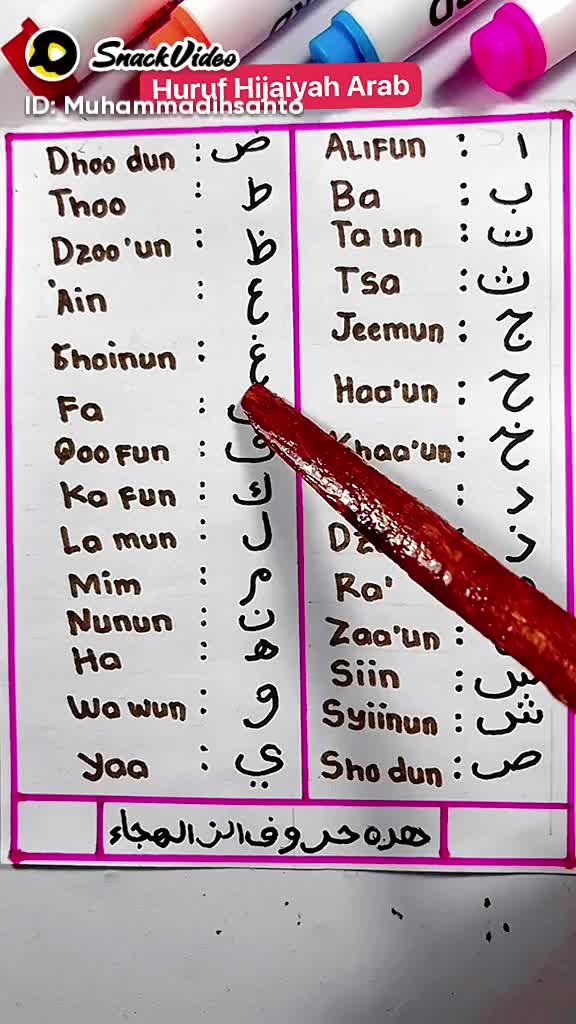 SnackVideo
Huruf Hijaiyah Arab
ID: Muhammadihsanto
ALIFUN : ا
Ba : ب
Ta un : ت
Tsa : ث
Jeemun : ج
Haa'un : ح
Khaa'un : خ
: د
Ra'
Zaa'un :
Siin : س
Syiinun : ش
Sho dun : ص
Dhoo dun : ض
Thoo : ط
Dzoo'un : ظ
'Ain : ع
Ghoinun : غ
Fa :
Qoo fun : ق
Ka fun : ك
La mun : ل
Mim : م
Nunun : ن
Ha : ه
Wa wun : و
Yaa : ي
هده حروف الهجاء